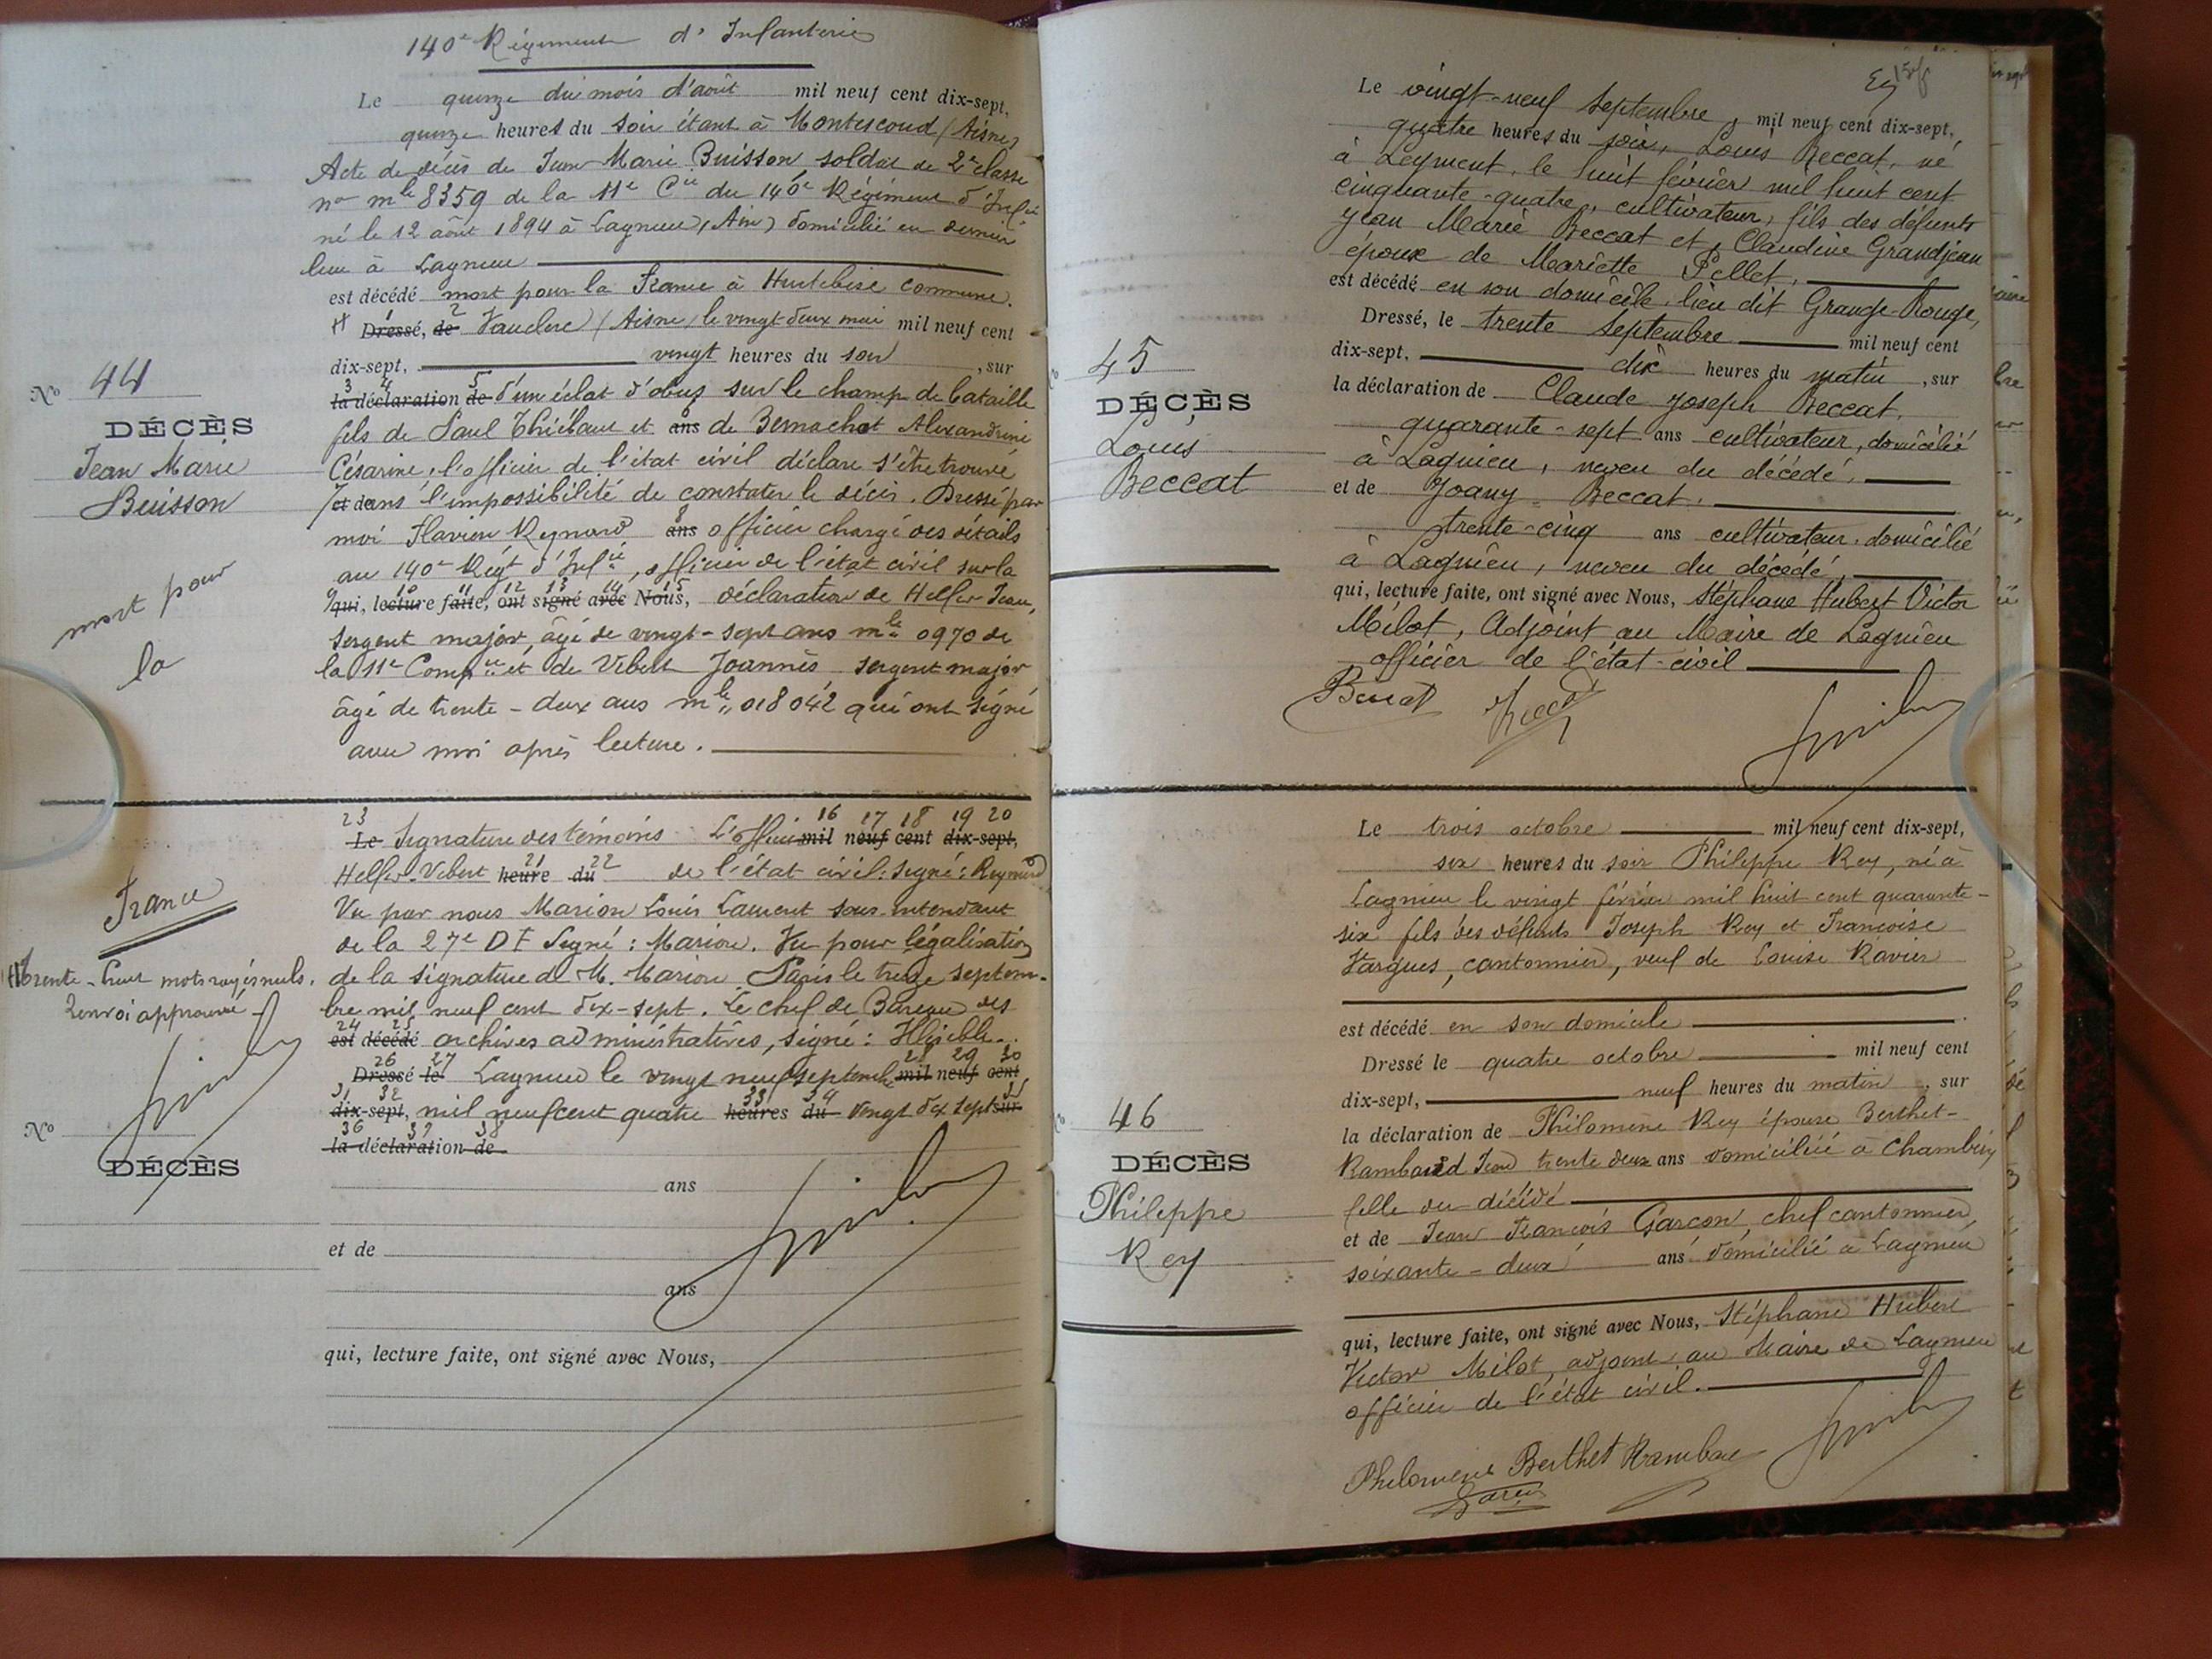 140e Régiment d'Infanterie
Le quinze du mois d'août mil neuf cent dix-sept,
quinze heures du soir étant à Montescoud (Aisne)
Acte de décès de Jean Marie Buisson, soldat de 2e classe
no mle 8359 de la 11e Cie du 140e Régiment d'Infie
né le 12 août 1894 à Lagnieu, (Ain) domicilié en dernier
lieu à Lagnieu
est décédé mort pour la France à Hurtebise commune.
H 1 Dressé, de 2 Vauclerc (Aisne) le vingt deux mai mil neuf cent
dix-sept, vingt heures du soir, sur
3 4 5
la déclaration de d'un éclat d'obus sur le champ de bataille
fils de Paul Thiébaut et 6 ans de Bernachot Alexandrine
Césarine, l'officier de l'état civil déclare s'être trouvé
7 et dans l'impossibilité de constater le décès. Dressé par
moi Flavien Reynard 8 ans officier chargé des détails
au 140e Régt d'Infie, officier de l'état civil sur la
9 10 11 12 13 14 15
qui, lecture faite, ont signé avec Nous, déclaration de Helfer Jean,
sergent major, âgé de vingt-sept ans mle 0970 de
la 11e Compie et de Vibert Joannès sergent major
âgé de trente-deux ans mle 018042 qui ont signé
avec moi après lecture.
No 44
DÉCÈS
Jean Marie
Buisson
mort pour
la
France
H Trente-huit mots rayés nuls.
Renvoi approuvé
23 16 17 18 19 20
Le Signature des témoins L'officier mil neuf cent dix-sept,
Helfer Vibert 21 heure 22 du de l'état civil: signé: Reynard
Vu par nous Marion Louis Laurent sous-intendant
de la 27e DI Signé: Marion. Vu pour légalisation
de la signature de M. Marion Paris le treize septem-
bre mil neuf cent dix-sept. Le chef de Bureau des
24 25
est décédé archives administratives, signé: Illisible.
26 27 28 29 30
Dressé le Lagnieu le vingt neuf septembre mil neuf cent
31 32 33 34 35
dix-sept, mil neuf cent quatre heures du vingt dix sept sur
36 37 38
la déclaration de
No
DÉCÈS
ans
et de
ans
qui, lecture faite, ont signé avec Nous,
Le vingt-neuf septembre, mil neuf cent dix-sept,
quatre heures du soir, Louis Beccat, né
à Leyment, le huit février mil huit cent
cinquante-quatre, cultivateur, fils des défunts
Jean Marie Beccat et, Claudine Grandjean
époux de Mariette Pellet,
est décédé en son domicile, lieu dit Grange-Rouge,
Dressé, le trente septembre mil neuf cent
dix-sept, dix heures du matin, sur
la déclaration de Claude Joseph Beccat,
quarante-sept ans cultivateur, domicilié
à Lagnieu, neveu du décédé,
et de Joany Beccat.
trente-cinq ans cultivateur, domicilié
à Lagnieu, neveu du décédé,
qui, lecture faite, ont signé avec Nous, Stéphane Hubert Victor
Milot, Adjoint au Maire de Lagnieu
officier de l'état-civil
Beccat Beccat
45
DÉCÈS
Louis
Beccat
Le trois octobre mil neuf cent dix-sept,
six heures du soir Philippe Rey, né à
Lagnieu le vingt février mil huit cent quarante-
six fils des défunts Joseph Rey et Françoise
Vargues, cantonnier, veuf de Louise Ravier
est décédé en son domicile
Dressé le quatre octobre mil neuf cent
dix-sept, neuf heures du matin, sur
la déclaration de Philomène Rey épouse Berthet-
Rambaud Jean trente deux ans domiciliée à Chambéry
fille du décédé
et de Jean François Garcon, chef cantonnier,
soixante-deux ans domicilié à Lagnieu
qui, lecture faite, ont signé avec Nous, Stéphane Hubert
Victor Milot, adjoint au Maire de Lagnieu
officier de l'état civil.
Philomène Berthet Rambau
46
DÉCÈS
Philippe
Rey